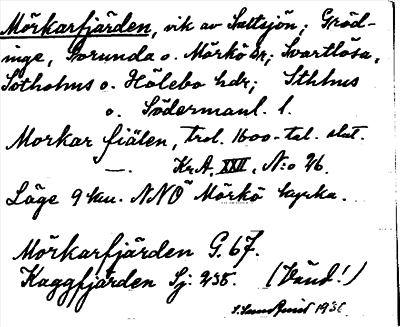 Mörkarfjärden, vik av Saltsjön; Gröd-
inge, Sorunda o. Mörkö sr; Svartlösa,
Sotholms o. Hölebo hdr; Sthlms
o. Södermanl. l.
Morkar fiälen, trol. 1600-tal. slut.
—. Kr.A. XXII. N:o 26.
Läge 9 km. NNÖ Mörkö kyrka.
Mörkarfjärden G. 67.
Kaggfjärden Sj: 235. (Vänd!)
1936